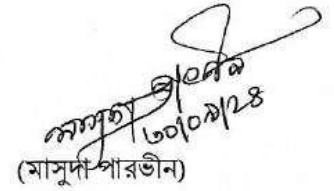 মাসুদা পারভীন
৩০/০৯/২৪
(মাসুদা পারভীন)